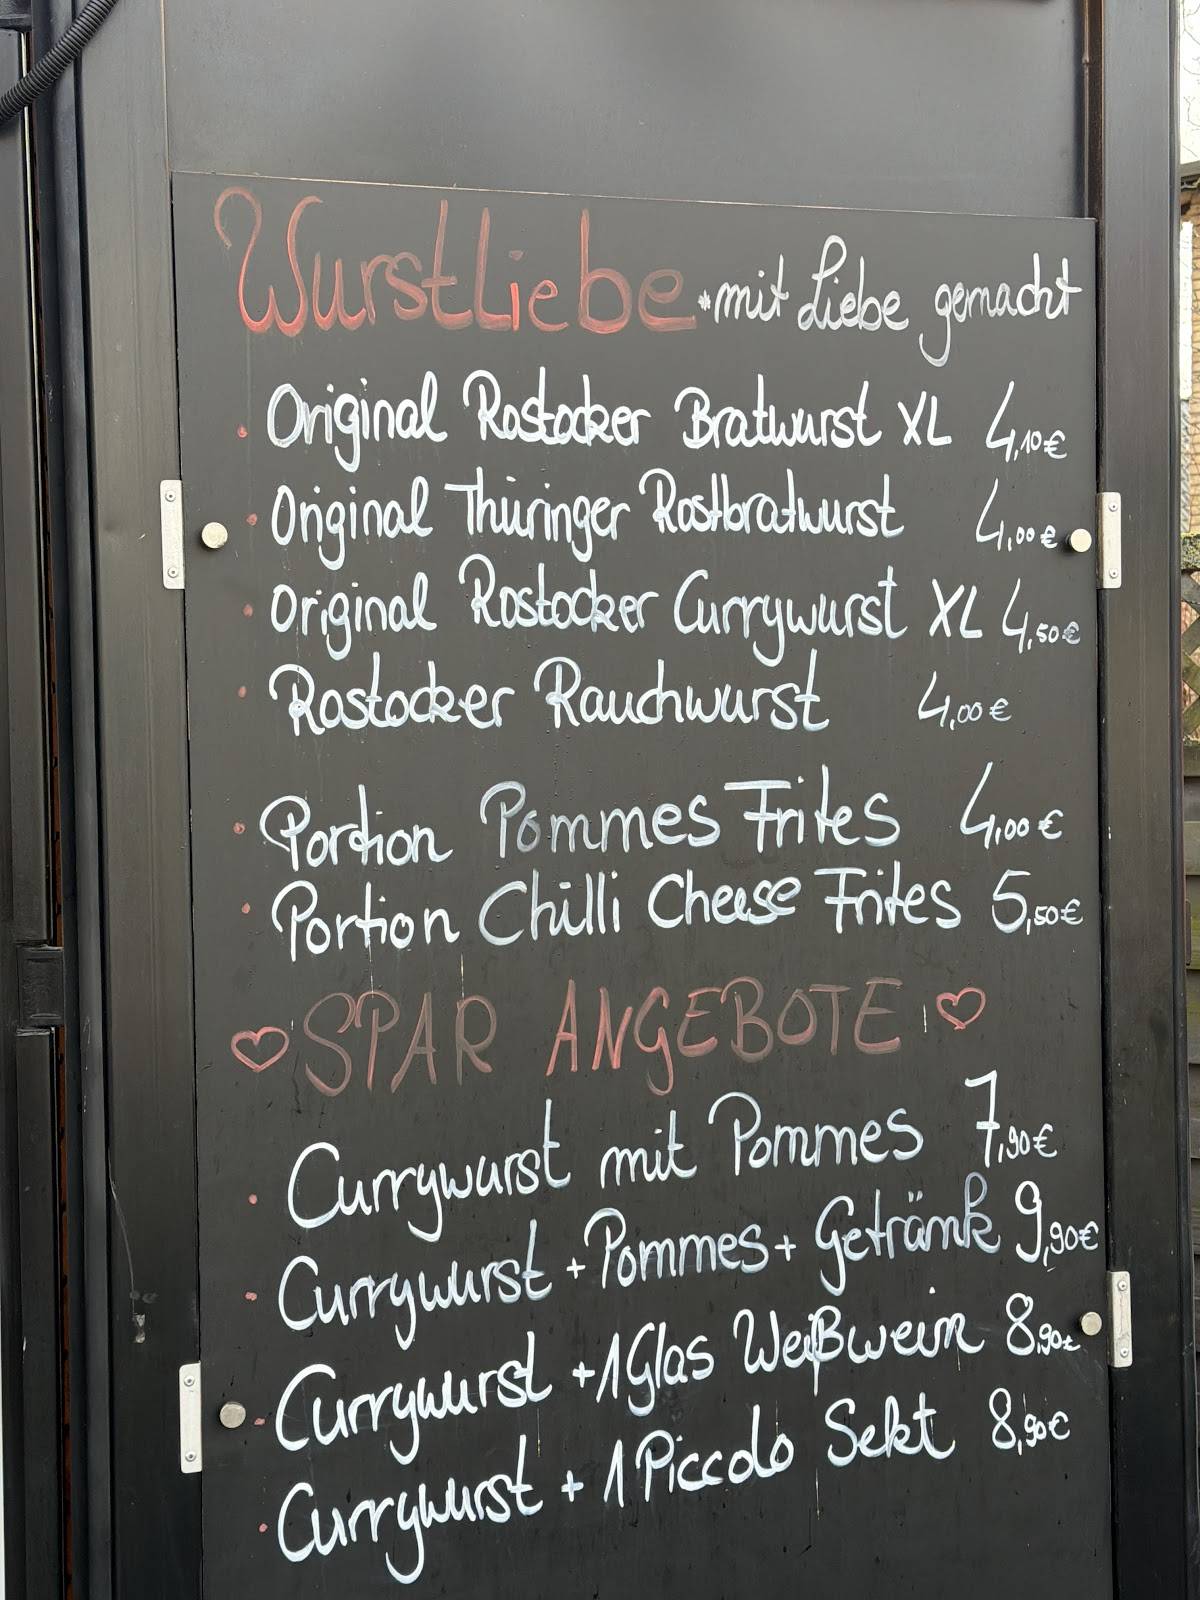 WurstLiebe *mit Liebe gemacht
• Original Rostocker Bratwurst XL 4,10€
• Original Thüringer Rostbratwurst 4,00€
• Original Rostocker Currywurst XL 4,50€
• Rostocker Rauchwurst 4,00€
• Portion Pommes Frites 4,00€
• Portion Chilli Cheese Frites 5,50€
♡ SPAR ANGEBOTE ♡
• Currywurst mit Pommes 7,90€
• Currywurst + Pommes + Getränk 9,90€
• Currywurst + 1 Glas Weißwein 8,90€
• Currywurst + 1 Piccolo Sekt 8,90€